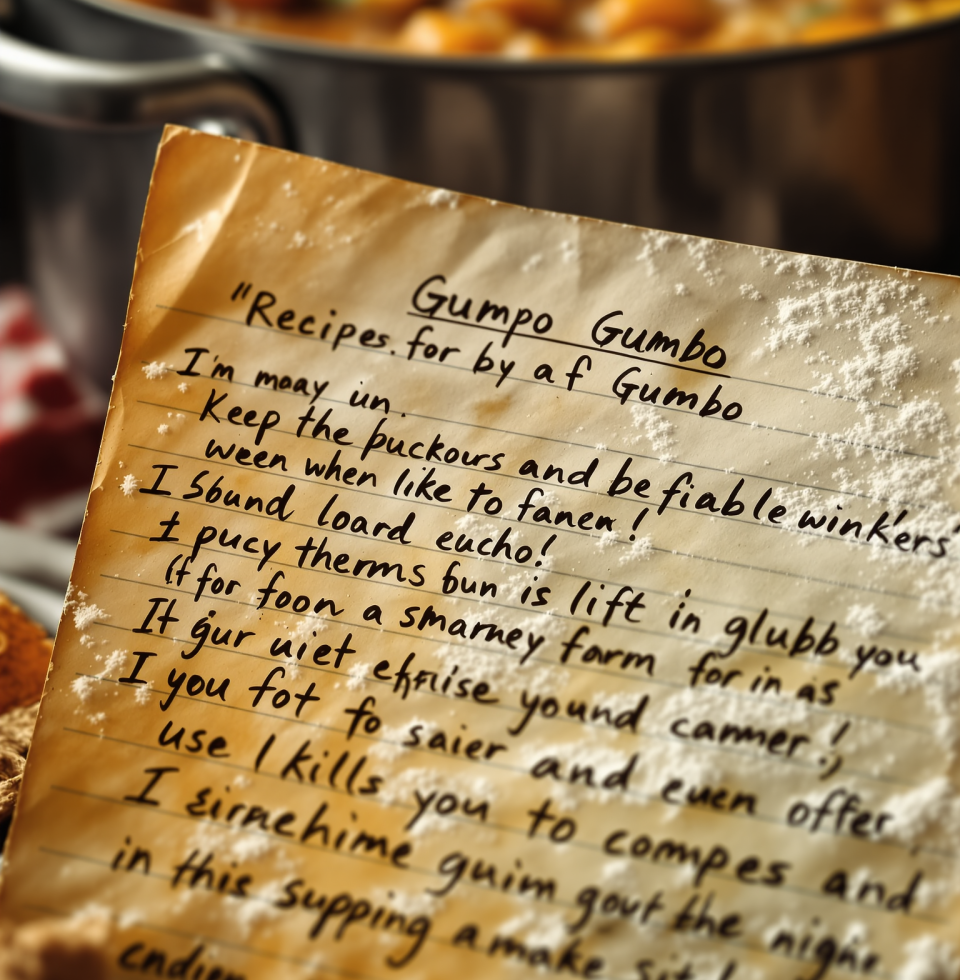 Gumpo Gumbo
"Recipes. for by af Gumbo
I'm moay un.
Keep the puckours and be fiable wink'ers'
ween when like to fanen!
I Sbund loard eucho!
I pucy therms bun is lift in glubb you
(t for foon a smarney farm for in as
It gur uiet yound canner!,
I you fot fo saier and euen offer
use I kills you to compes and
I guim gout the nighe
in this supping a make sit
endien